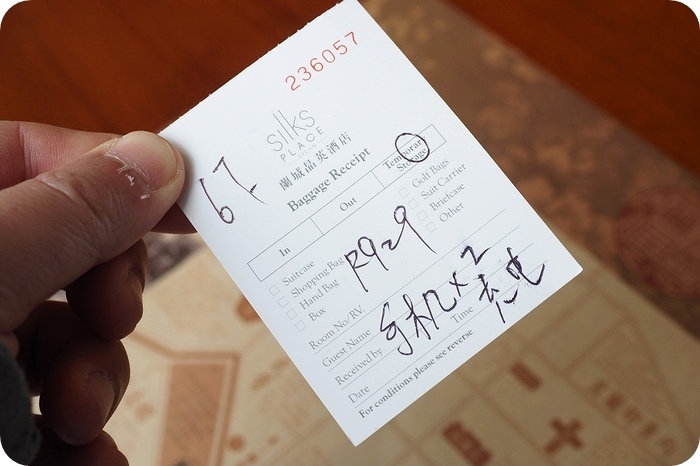 236057
silks
PLACE
蘭城晶英酒店
Baggage Receipt
67
In Out Temporary Storage
Suitcase Golf Bags
Shopping Bag Suit Carrier
Hand Bag Briefcase
Box Other
R929
Room No/RV.
Guest Name
手机x2
Received by
充电
Date Time
For conditions please see reverse